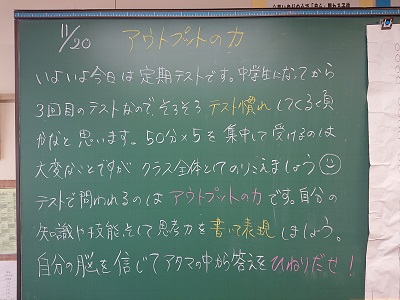 11/20 アウトプットの力
いよいよ今日は定期テストです。中学生になってから
3回目のテストなので、そろそろテスト慣れしてくる頃
かなと思います。50分×5を集中して受けるのは
大変なことですがクラス全体としてのりこえましょう
テストで問われるのはアウトプットの力です。自分の
知識や技能、そして思考力を書いて表現しましょう。
自分の脳を信じてアタマの中から答えをひねりだせ!